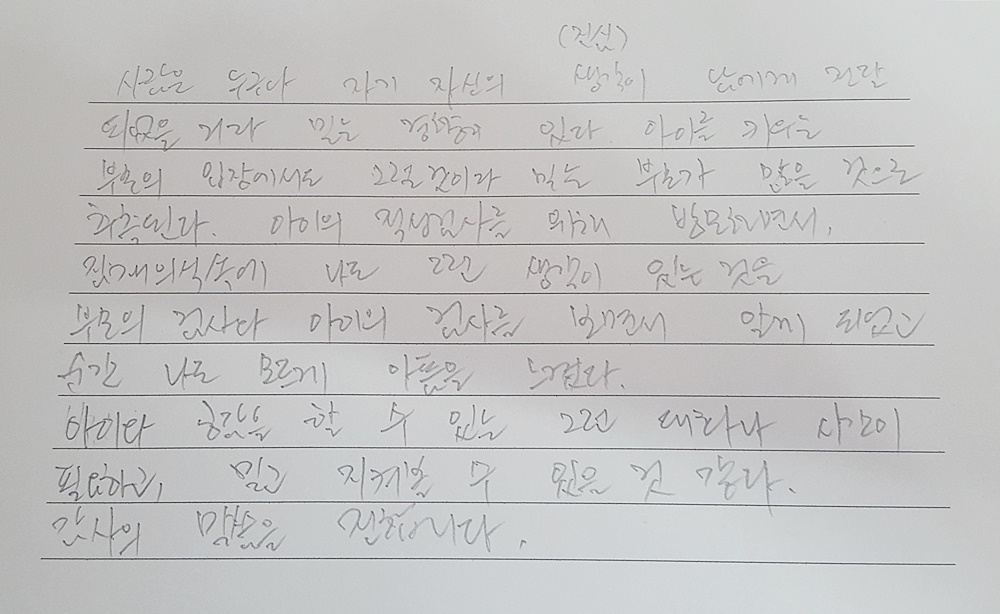 (진심)
사람은 누구나 자기 자신의 생각이 남에게 전달
되었을 거라 믿는 경향이 있다. 아이를 키우는
부모의 입장에서도 그럴것이라 믿는 부모가 많을 것으로
예측된다. 아이의 적성검사를 위해 방문하면서,
잠재의식속에 나도 그런 생각이 있는 것을
부모의 검사와 아이의 검사를 보면서 알게 되었고
순간 나도 모르게 아픔을 느꼈다.
아이와 공감을 할 수 있는 그런 대화나 시간이
필요하고, 믿고 지켜볼 수 있을 것 같다.
감사의 말씀을 전합니다.